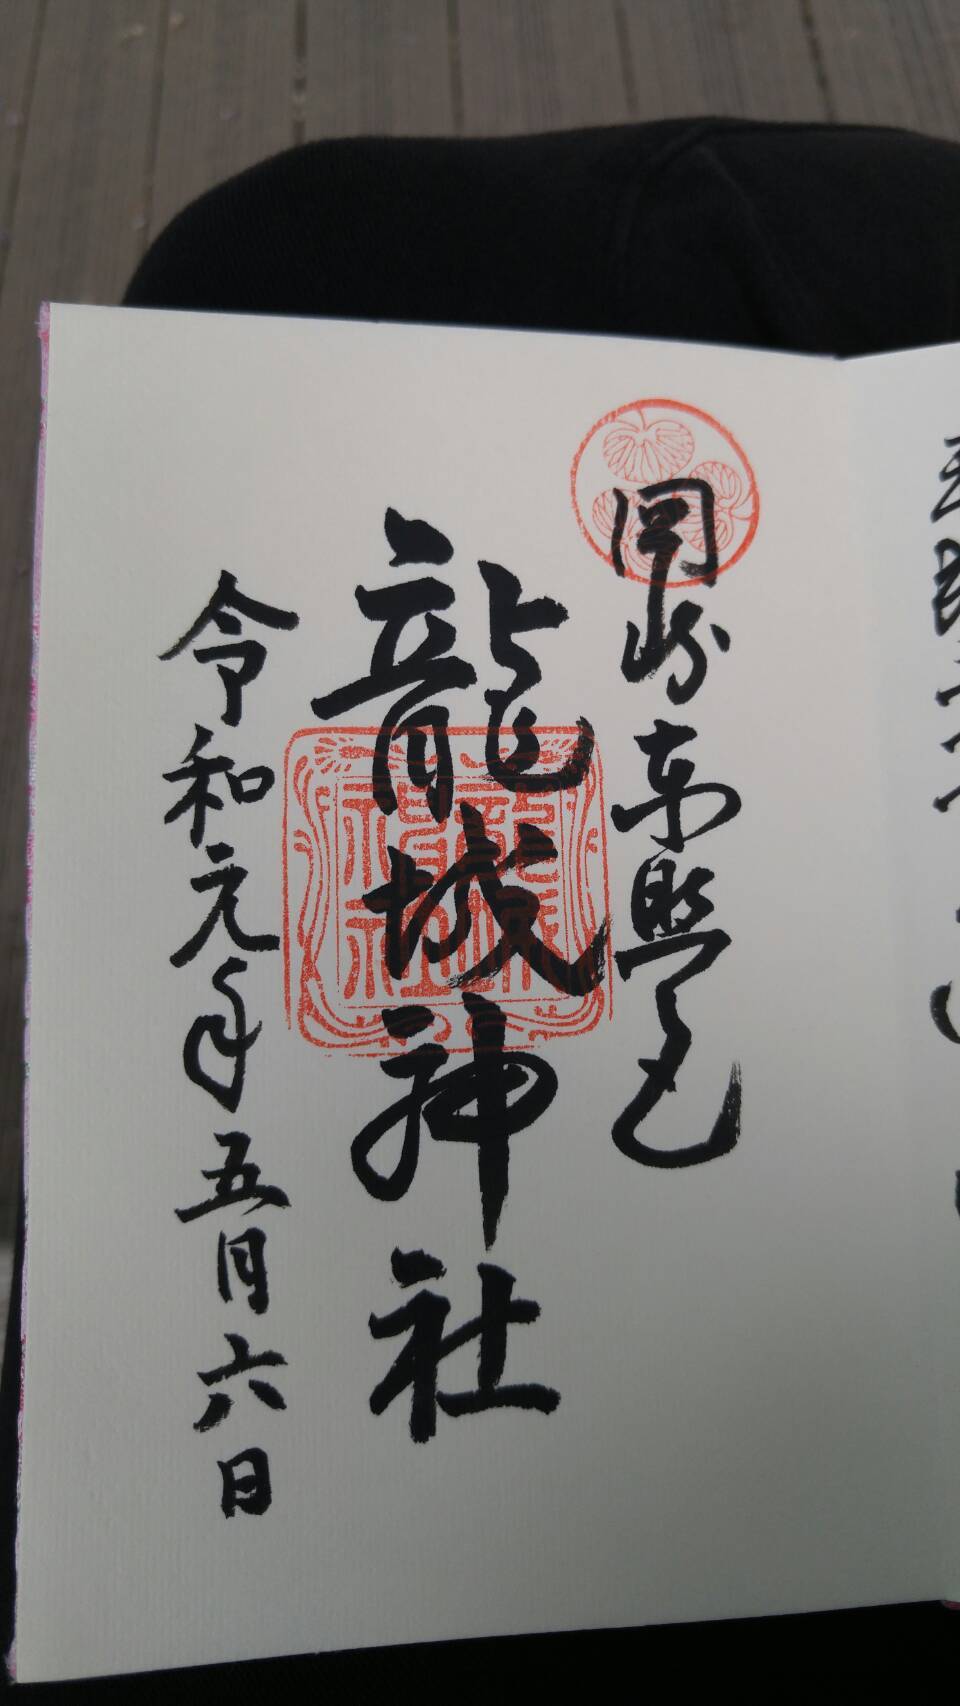 岡崎東照宮
龍城神社
令和元年五月六日